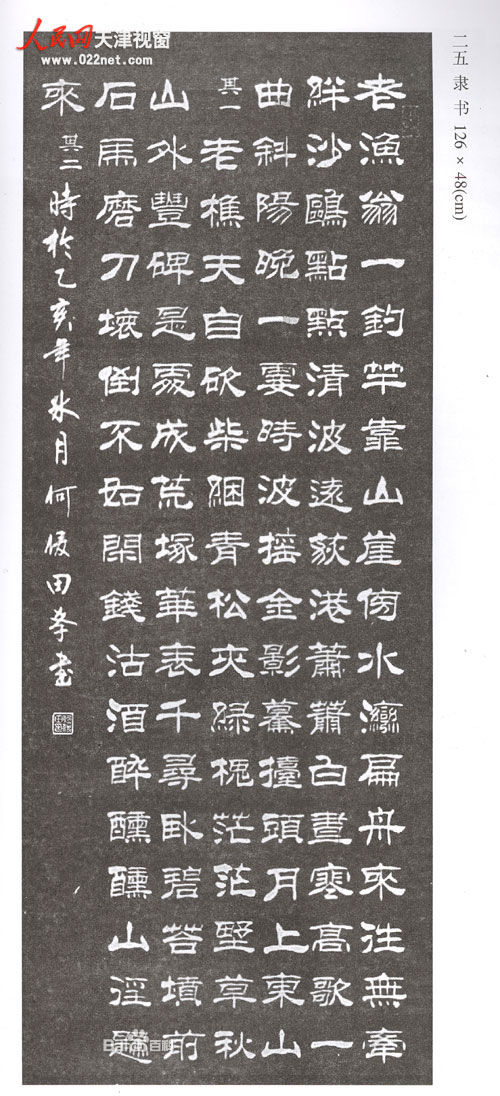 人民网 天津视窗
www.022net.com
二五 隶书 126×48(cm)
老漁翁一釣竿靠山崖傍水灣扁舟來往無牽
絆沙鷗點點清波遠荻港蕭蕭白晝寒高歌一
曲斜陽晚一霎時波搖金影驀擡頭月上東山
其一 老樵夫自砍柴綑青松夾綠槐茫茫墅草秋
山外豐碑是處成荒塚華表千尋臥碧苔墳前
石馬磨刀壞倒不如閑錢沽酒醉醺醺山徑歸
來 其二 時於乙亥年冰月何俊田書
Baidu百科